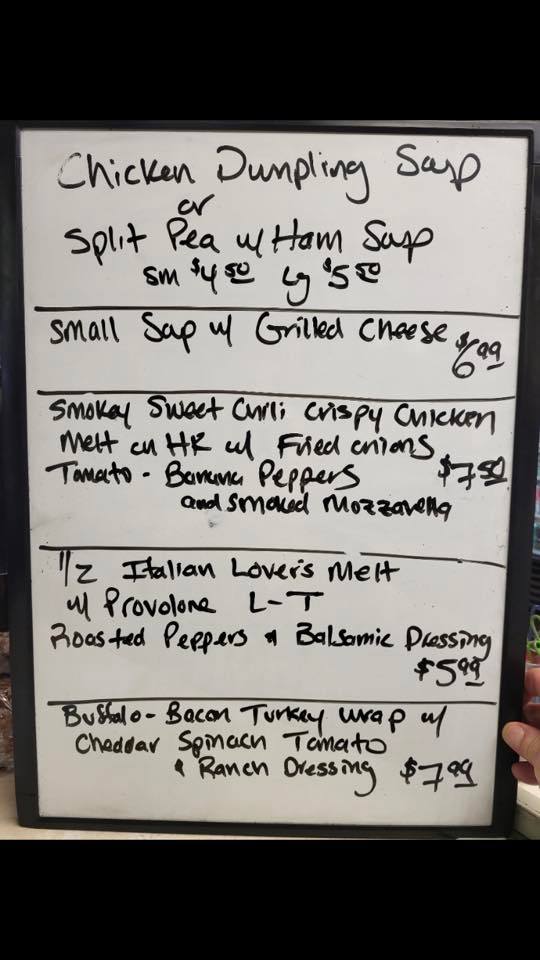 Chicken Dumpling Soup
or
Split Pea w/ Ham Soup
Sm $4.50 Lg $5.50
Small Soup w/ Grilled Cheese $6.99
Smokey Sweet Chili Crispy Chicken
Melt on HR w/ Fried onions
Tomato - Banana Peppers $7.50
and smoked Mozzarella
1/2 Italian Lover's Melt
w/ Provolone L-T
Roasted Peppers & Balsamic Dressing
$5.99
Buffalo - Bacon Turkey wrap w/
Cheddar Spinach Tomato
& Ranch Dressing $7.99